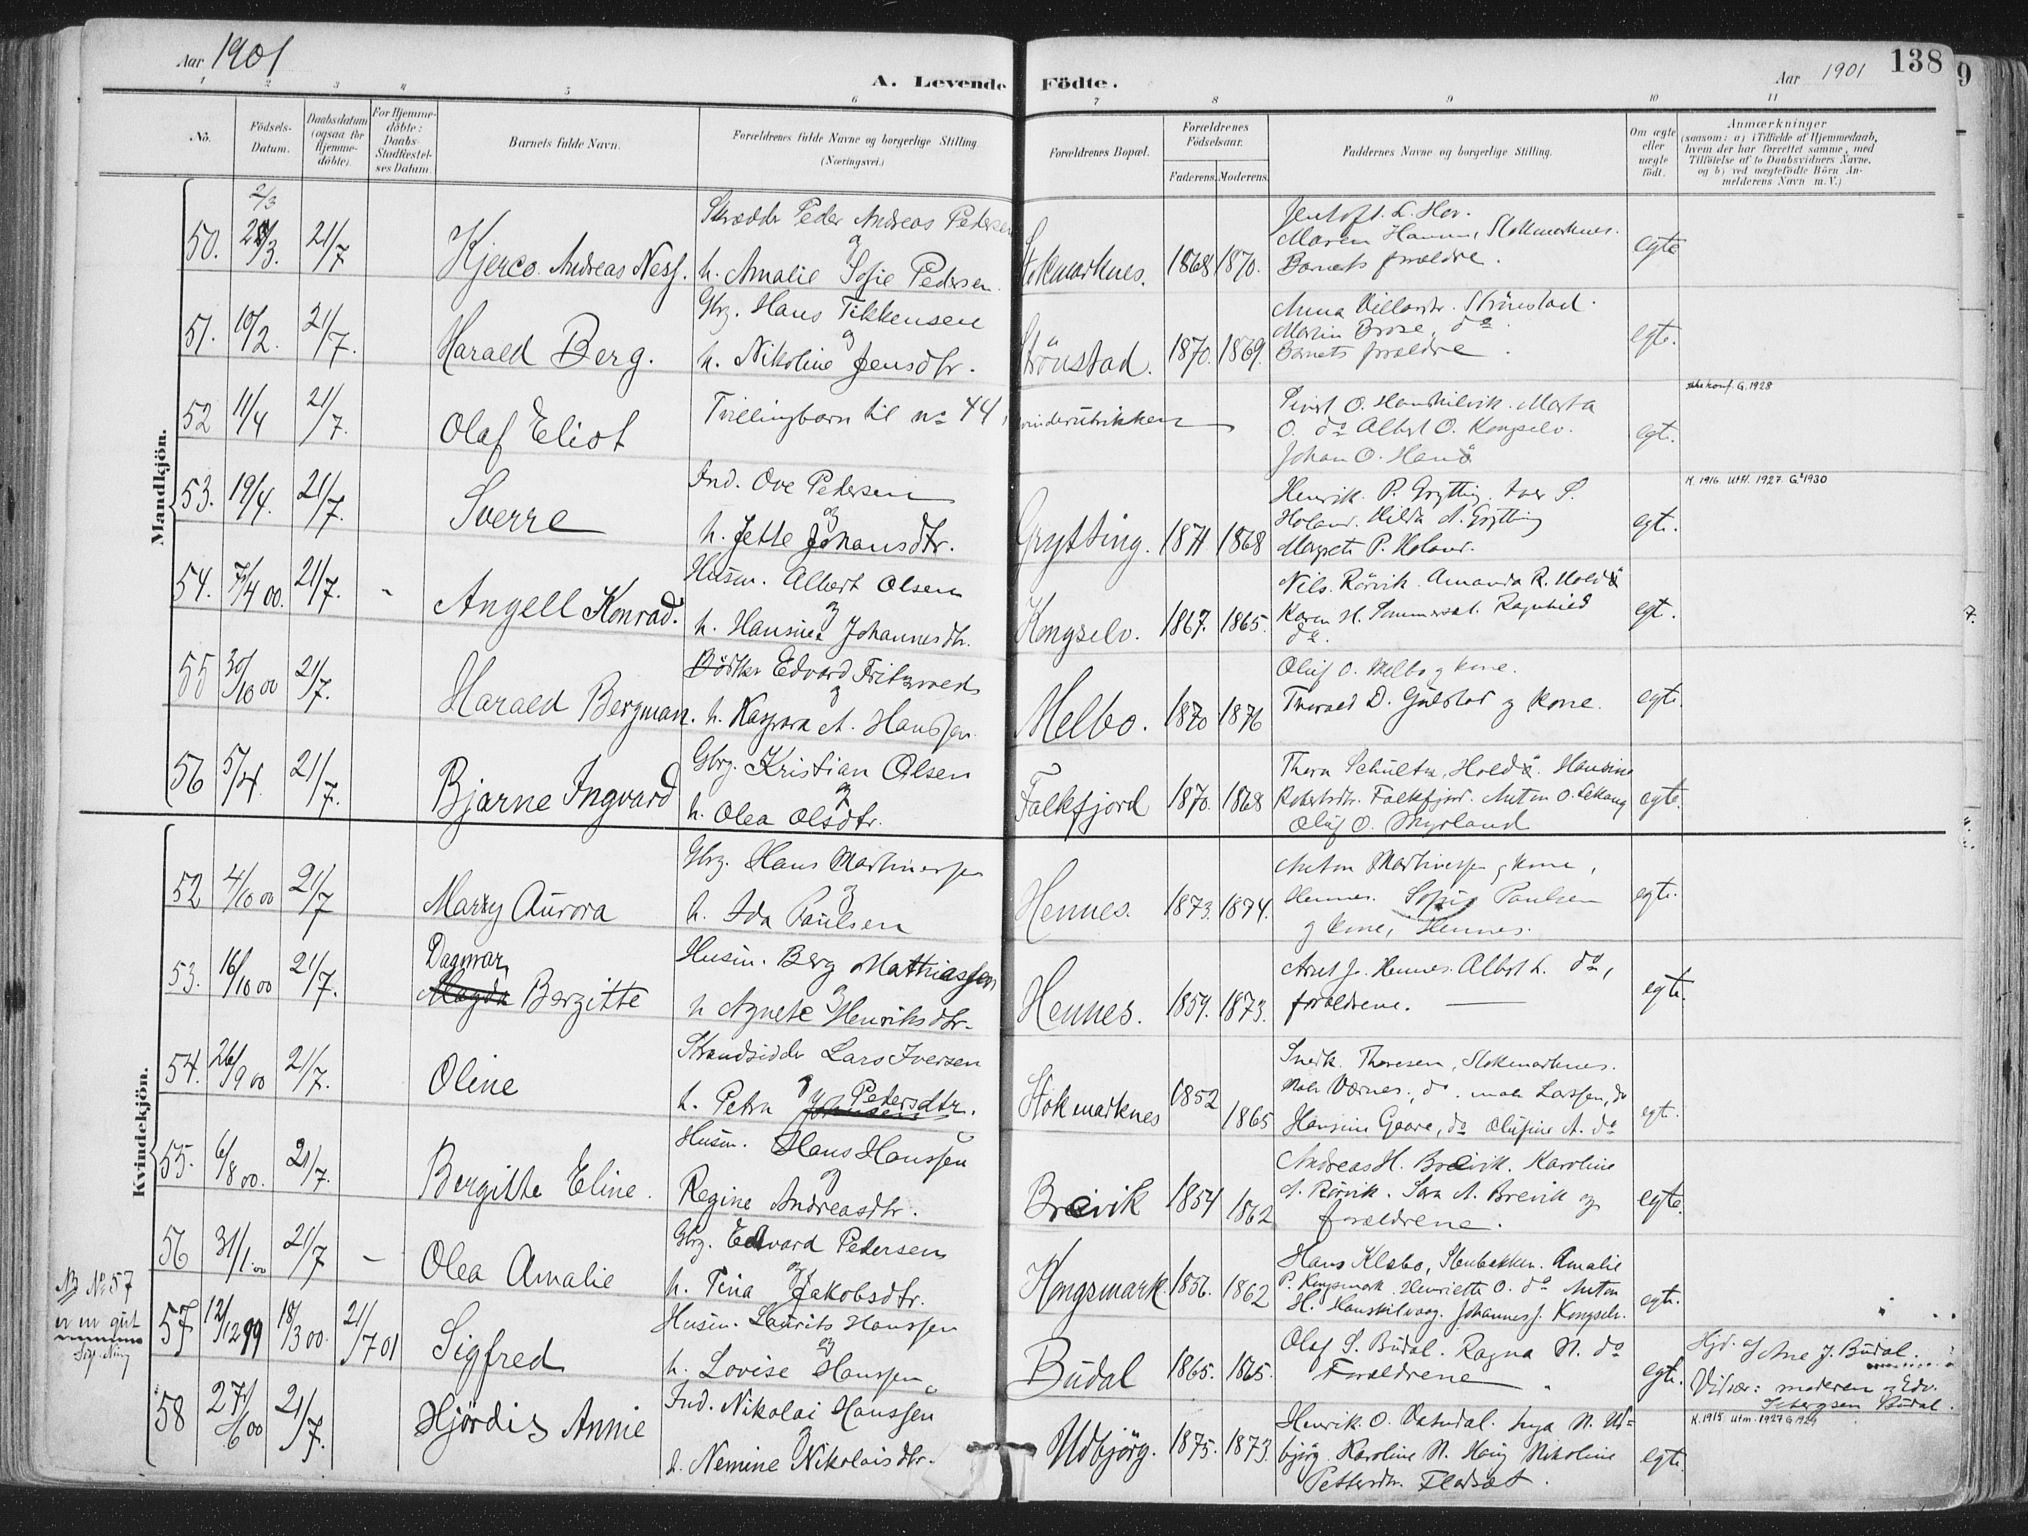 Aar 1901
A. Levende Födte.
Aar 1901
138
9
1 2 3 4 5 6 7 8 9 10 11
No.
Födsels-Datum.
Daabsdatum (ogsaa for Hjemme-döbte).
For Hjemme-döbte: Daabs-Stadfæstelses Datum.
Barnets fulde Navn.
Forældrenes fulde Navne og borgerlige Stilling (Næringsvei.)
Forældrenes Bopæl.
Forældrenes Födselsaar.
Faderens. Moderens.
Faddernes Navne og borgerlige Stilling.
Om ægte eller uægte födt.
Anmærkninger
(saasom: a) i Tilfælde af Hjemmedaab, hvem der har forrettet samme, med Tilföielse af to Daabsvidners Navne, og b) ved uægtefödte Börn Anmelderens Navn m. V.)
Mandkjön.
2/3
50. 28/3. 21/7 Kjerco Andreas Ness. Skrædder Peder Andreas Pedersen
og
h. Amalie Sofie Pedersen. Stokmarknes. 1868 1870.
Jentoft L. Hov.
Maren Hanssen, Stokmarknes.
Barnets forældre. egte
51. 10/2. 21/7. Harald Berg. Gbrg. Hans Tikkensen
og
h. Nikoline Jensdtr. Strönstad. 1870. 1869.
Anna Strönstad.
Martin Brose, do
Barnets forældre. egte.
52 11/4 21/7. Olaf Eliot Tvillingbarn til no 44, kvinderubrikken
Sivert O. Hanskilvik. Marta
O. do Albert O. Kongselv.
Johan O. egte.
ikke konf. G. 1928
53. 19/4. 21/7. Sverre Ind. Ove Pedersen
og
h. Jette Johansdtr. Grytting. 1871 1868
Henrik P. Grytting. Iver S.
Holand. Hilda A. Grytting
Margrete P. Holand. egte.
K. 1916. Utfl. 1927. G. 1930
54. 7/4 00. 21/7. - Angell Konrad. Husm. Albert Olsen
og
h. Hansine Johannesdtr. Kongselv. 1867. 1865.
Nils Rörvik. Amanda R. Holdö
Karen H. Sommerset. Ragnhild
do. egt.
55 30/10 00 21/7. Harald Bergman. Bödker Edvard Fritzvold
og
h. Kaspara A. Hanssen. Melbo. 1870 1876
Oluf O. Melbo og kone.
Thorvald D. Gulstad og kone. egte.
56 5/4. 21/7. Bjarne Ingvard Gbrg. Kristian Olsen
og
h. Olea Olsdtr. Falkfjord 1870. 1868
Thora Schultz, Holdö. Hansine
Robertsdtr. Falkfjord. Anton O. Lekang
Oluf O. Myrland egte.
Kvindekjön.
52 4/10 00 21/7 Marry Aurora Gbrg. Hans Martinussen
og
h. Ida Paulsen Hennes. 1873. 1874.
Anton Martinussen og kone,
Hennes. Sofus Paulsen
og kone, Hennes. egte.
53. 16/10 00 21/7. Dagmar
Magda Bergitte Husm. Berg Mathiassen
og
h Agnete Henriksdtr. Hennes. 1859. 1873.
Arnt Jo. Hennes. Albert L. do,
forældrene. egte.
54. 26/9 00 21/7. Oline Strandsidder Lars Iversen
og
h. Petra Petersdtr. Stokmarknes 1852 1865
Snedk. Thoresen, Stokmarknes.
Værnes, do. Larssen, do
Hansine Gaare, do Olufine A. do egt.
55. 6/8 00. 21/7. Bergitte Eline. Husm. Hans Hanssen
og
Regine Andreasdtr. Breivik 1854 1862
Andreas H. Breivik. Karoline
A. Rörvik. Sara A. Brevik og
forældrene. egte.
56 31/1 00 21/7 - Olea Amalie Gbrg. Edvard Pedersen
og
h. Tina Jakobsdtr. Kongsmark. 1856. 1862
Hans Klebo, Stenbakken. Amalie
P. Kongsmark. Henriette O. do Anton
H. Hanskilvaag. Johannes J. Kongselv. egte.
NB No 57
er en gut
57 12/12 99 18/3 00. 21/7 01 Sigfred Husm. Laurits Hanssen
og
h. Lovise Hanssen Budal 1865. 1865.
Olaf S. Budal. Ragna N. do
Forældrene. egte.
Hjd. af Ane J. Budal.
Vidner: moderen og Edv.
Budal.
58 27/6 00 21/7. Hjördis Annie Ind. Nikolai Hanssen
og
h. Nemine Nikolaisdtr. Udbjörg. 1875. 1873.
Henrik O. Vatndal. Inga N. Ud-
björg. Karoline N. Haug Nikoline
Pettersdtr. Fladset. egte.
K. 1915 Utm. 1927 G 1929